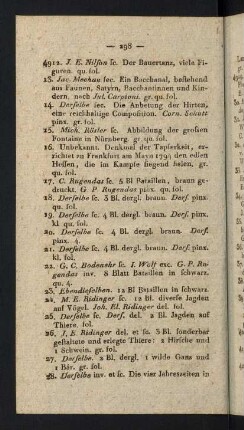 — 298 —
4912. J. E. Nilſon ſc. Der Bauertanz, viele Fi-
guren. qu. fol.
13. Jac. Mechau ſec. Ein Bacchanal, beſtehend
aus Faunen, Satyrn, Bacchantinnen und Kin-
dern, nach Jul. Carpioni. gr. qu. fol.
14. Derſelbe ſec. Die Anbetung der Hirten,
eine reichhaltige Compoſition. Corn. Schutt
pinx. gr. fol.
15. Mich. Röſler ſc. Abbildung der großen
Fontaine in Nürnberg. gr. qu. fol.
16. Unbekannt. Denkmal der Tapferkeit, er-
richtet zu Frankfurt am Mayn 1793 den edlen
Heſſen, die im Kampfe ſiegend ſtarben, gr. qu. fol.
17. C. Rugendas ſc. 5 Bl Bataillen, braun ge-
druckt. G P. Rugendas pinx. qu. fol.
18. Derſelbe ſc. 3 Bl dergl. braun. Derſ. pinx.
qu. fol.
19. Derſelbe ſc. 4 Bl. dergl. braun. Derſ. pinx.
kl qu. fol.
20. Derſelbe ſc. 4 Bl. dergl. braun. Derſ.
pinx. 4.
21. Derſelbe ſc. 4 Bl. dergl. braun. Derſ. pinx.
kl. qu. fol.
22. G. C. Bodenehr ſc. J. Wolff exc. G. P. Ru-
gendas inv. 8 Blatt Bataillen in ſchwarz.
qu. 4.
23. Ebendieſelben. 12 Bl Bataillen in ſchwarz.
24. M. E. Ridinger ſc. 12 Bl. diverſe Jagden
auf Vögel. Joh. El. Ridinger del. fol.
25. Derſelbe ſc. Derſ. del. 2 Bl. Jagden auf
Thiere. fol.
26. J. E. Ridinger del. et ſc. 3 Bl. ſonderbar
geſtaltete und erlegte Thiere: 2 Hirſche und
1 Schwein. gr. fol.
27. Derſelbe. 2 Bl. dergl. 1 wilde Gans und
1 Bär. gr. fol.
28. Derſelbe inv. et ſc. Die vier Jahreszeiten in